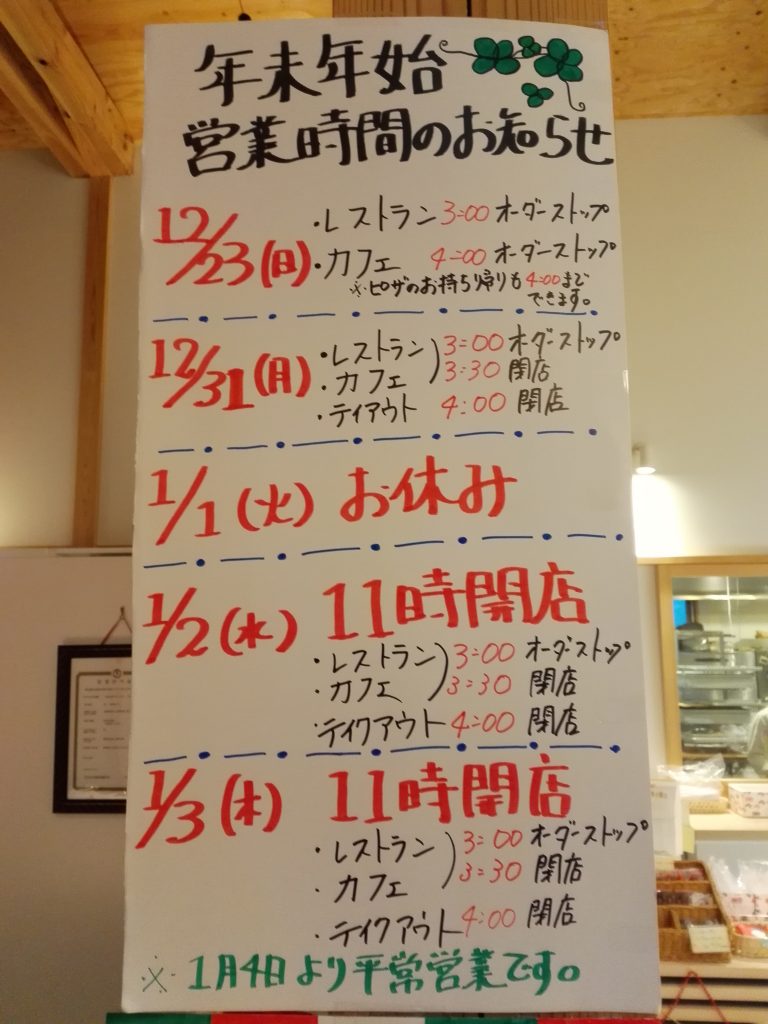 年末年始
営業時間のお知らせ
12/23(日)
・レストラン 3:00 オーダーストップ
・カフェ 4:00 オーダーストップ
※ピザのお持ち帰りも4:00まで
できます。
12/31(月)
・レストラン 3:00 オーダーストップ
・カフェ 3:30 閉店
・テイアウト 4:00 閉店
1/1(火) お休み
1/2(水) 11時開店
・レストラン 3:00 オーダーストップ
・カフェ 3:30 閉店
・テイクアウト 4:00 閉店
1/3(木) 11時開店
・レストラン 3:00 オーダーストップ
・カフェ 3:30 閉店
・テイクアウト 4:00 閉店
※1月4日より平常営業です。